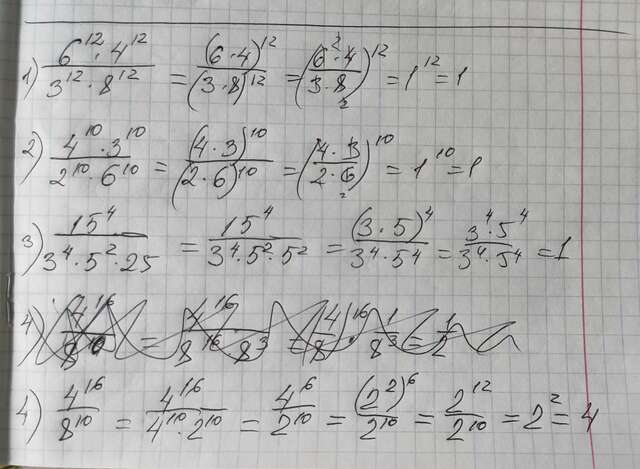 1) 6^12 · 4^12 / 3^12 · 8^12 = (6 · 4)^12 / (3 · 8)^12 = (6^2 · 4 / 3 · 8_2)^12 = 1^12 = 1
2) 4^10 · 3^10 / 2^10 · 6^10 = (4 · 3)^10 / (2 · 6)^10 = (4 · 3 / 2 · 6_2)^10 = 1^10 = 1
3) 15^4 / 3^4 · 5^2 · 25 = 15^4 / 3^4 · 5^2 · 5^2 = (3 · 5)^4 / 3^4 · 5^4 = 3^4 · 5^4 / 3^4 · 5^4 = 1
4) 4^16 / 8^10 = 4^16 / 4^10 · 2^10 = 4^6 / 2^10 = (2^2)^6 / 2^10 = 2^12 / 2^10 = 2^2 = 4